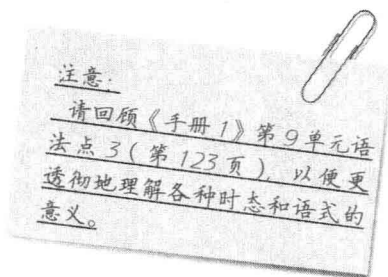 注意：
请回顾《手册1》第9单元语
法点3（第123页），以便更
透彻地理解各种时态和语式的
意义。